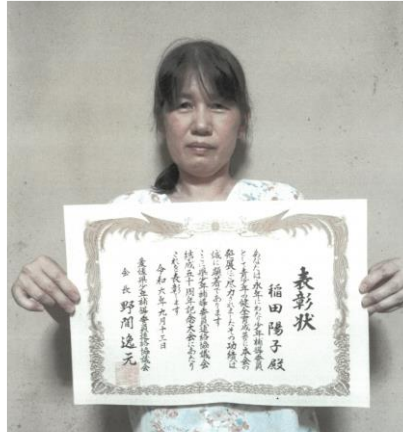 表彰状
稲田陽子殿
あなたは永年にわたり少年補導委員
として青少年の健全育成等に本会の
発展に尽力されましたその功績は
誠に顕著であります
ここに県少年補導委員連絡協議会
結成五十周年記念大会にあたり
これを表彰します
令和六年九月十三日
愛媛県少年補導委員連絡協議会
会長 野間逸元